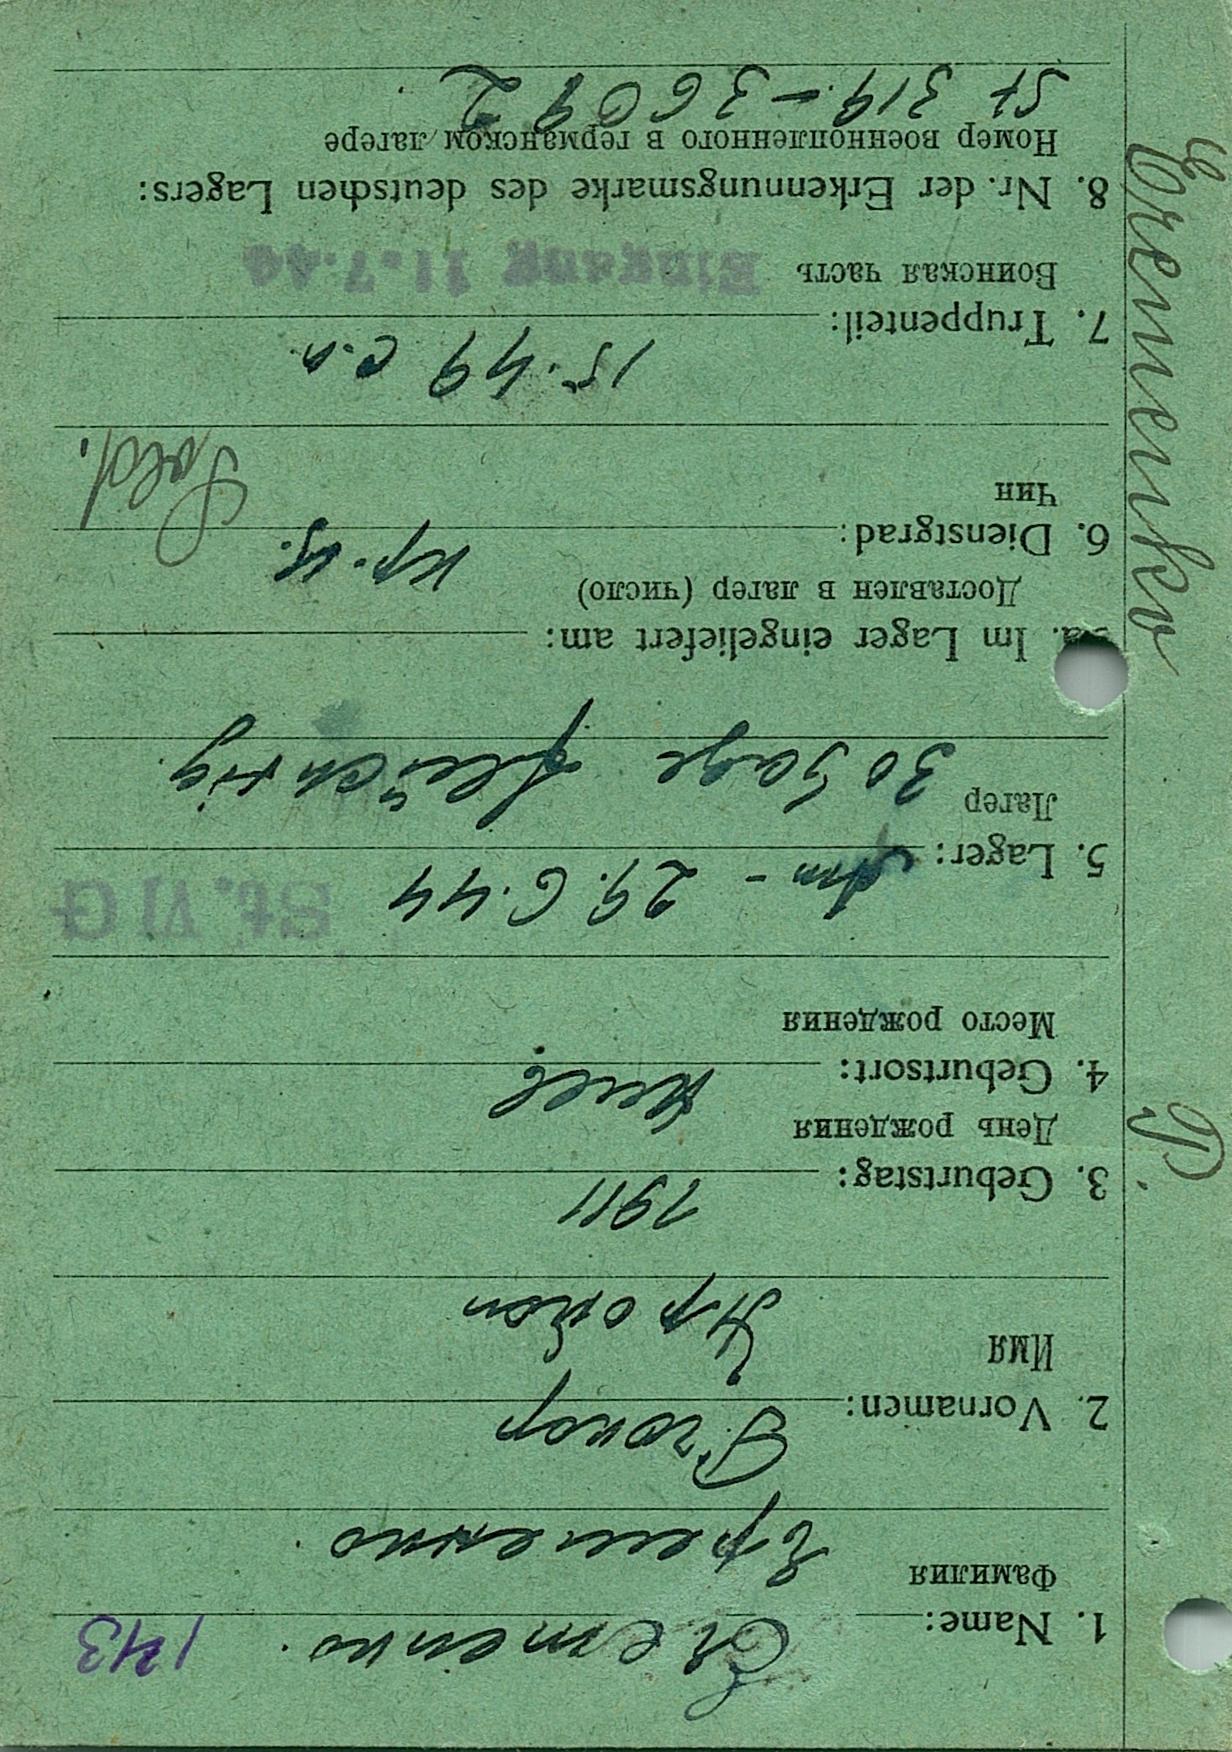 Eremenko P.
1. Name: Eremenko. 143
Фамилия Еременко.
2. Vornamen: Prokop
Имя Прокоп
3. Geburtstag: 1911
День рождения
4. Geburtsort: Киев
Место рождения
5. Lager: Am - 29.6.44 St. VI G
Лагер 30 Tage flüchtig.
5a. Im Lager eingeliefert am:
Доставлен в лагер (число)
6. Dienstgrad: кр-ц.
Чин Sold.
7. Truppenteil: 15.49 с.п.
Воинская часть Eingang 11.7.44
8. Nr. der Erkennungsmarke des deutschen Lagers:
Номер военнопленного в германском лагере
St 319 - 36092